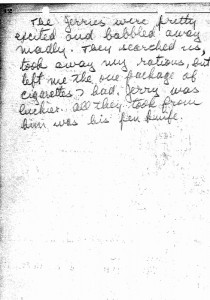 The Jerries were pretty
excited and babbled away
madly. They searched us,
took away my rations, but
left me the one package of
cigarettes I had. Jerry was
luckier. All they took from
him was his pen knife.